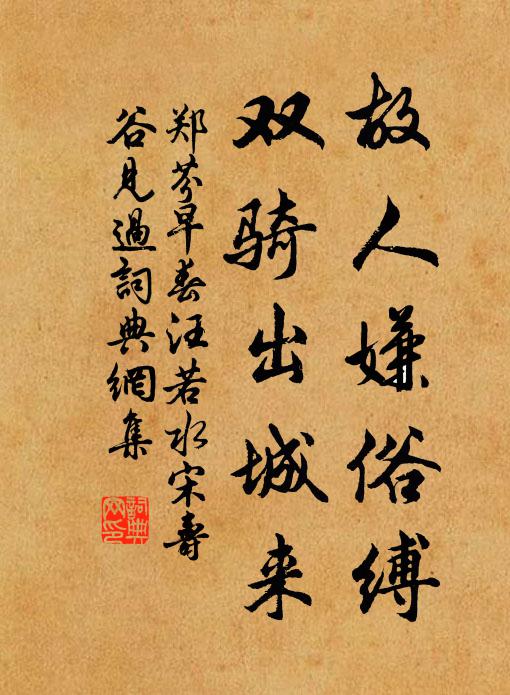 故人嫌俗缚
双骑出城来
郑芬早春汪若水宋寿
谷见過詞典網集
詞典网印